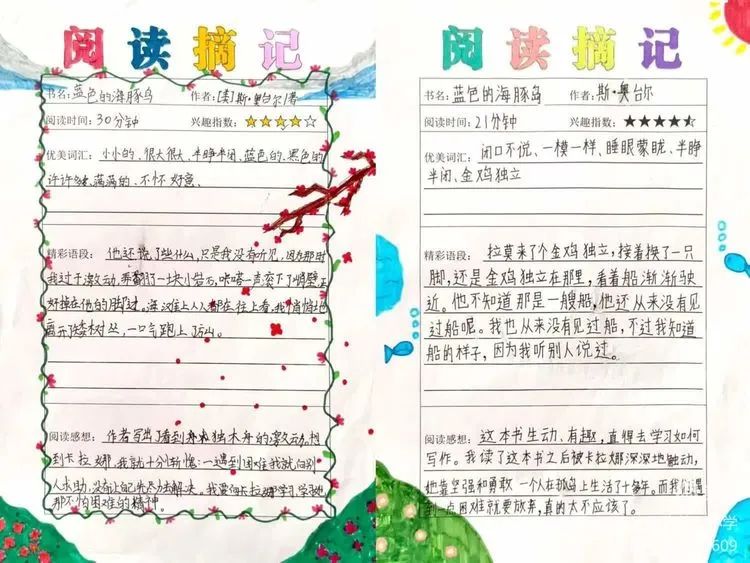 阅读摘记
书名:蓝色的海豚岛 作者:[美]斯·奥台尔著
阅读时间:30分钟 兴趣指数:★★★★☆
优美词汇:小小的、很大很大、半睁半闭、蓝色的、黑色的
许许多多、满满的、不怀好意、
精彩语段:他还说了些什么,只是我没有听见,因为那时
我过于激动,弄翻了一块小岩石,咔嗒一声滚下了峭壁,
好掉在他的脚边。海滩上人人都在往上看。我悄悄地
离开了矮树丛,一口气跑上了后山。
阅读感想:作者写出了看到独木舟的激动,想
到卡拉娜,我就十分惭愧:一遇到困难我就向别
人求助,没有上自己尽力去解决。我要向卡拉娜学习,学习她
那不怕困难的精神。
阅读摘记
书名:蓝色的海豚岛 作者:斯·奥台尔
阅读时间:21分钟 兴趣指数:★★★★
优美词汇:闭口不说、一模一样、睡眼蒙眬、半睁
半闭、金鸡独立
精彩语段:拉莫来了个金鸡独立,接着换了一只
脚,还是金鸡独立在那里,看着船渐渐驶
近。他不知道那是一艘船,他还从来没有见
过船呢。我也从来没有见过船,不过我知道
船的样子,因为我听别人说过。
阅读感想:这本书生动、有趣,值得去学习如何
写作。我读了这本书之后被卡拉娜深深地触动,
她靠坚强和勇敢 一个人在孤岛上生活了十多年。而我们遇
到一点困难就要放弃,真的太不应该了。
学
609